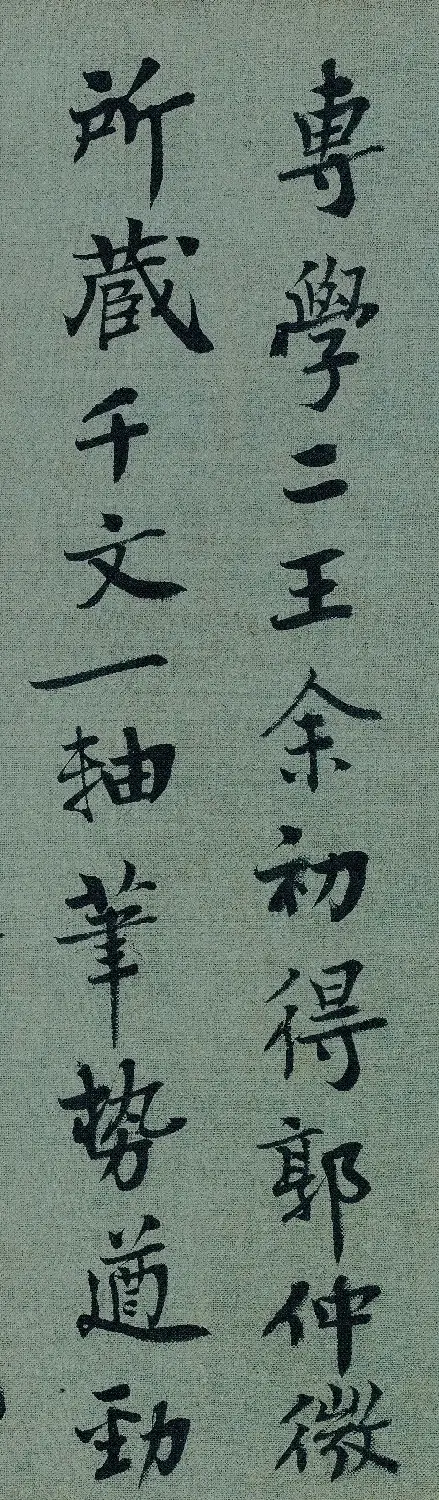 專學二王余初得郭仲微
所蔵千文一軸筆勢遒勁